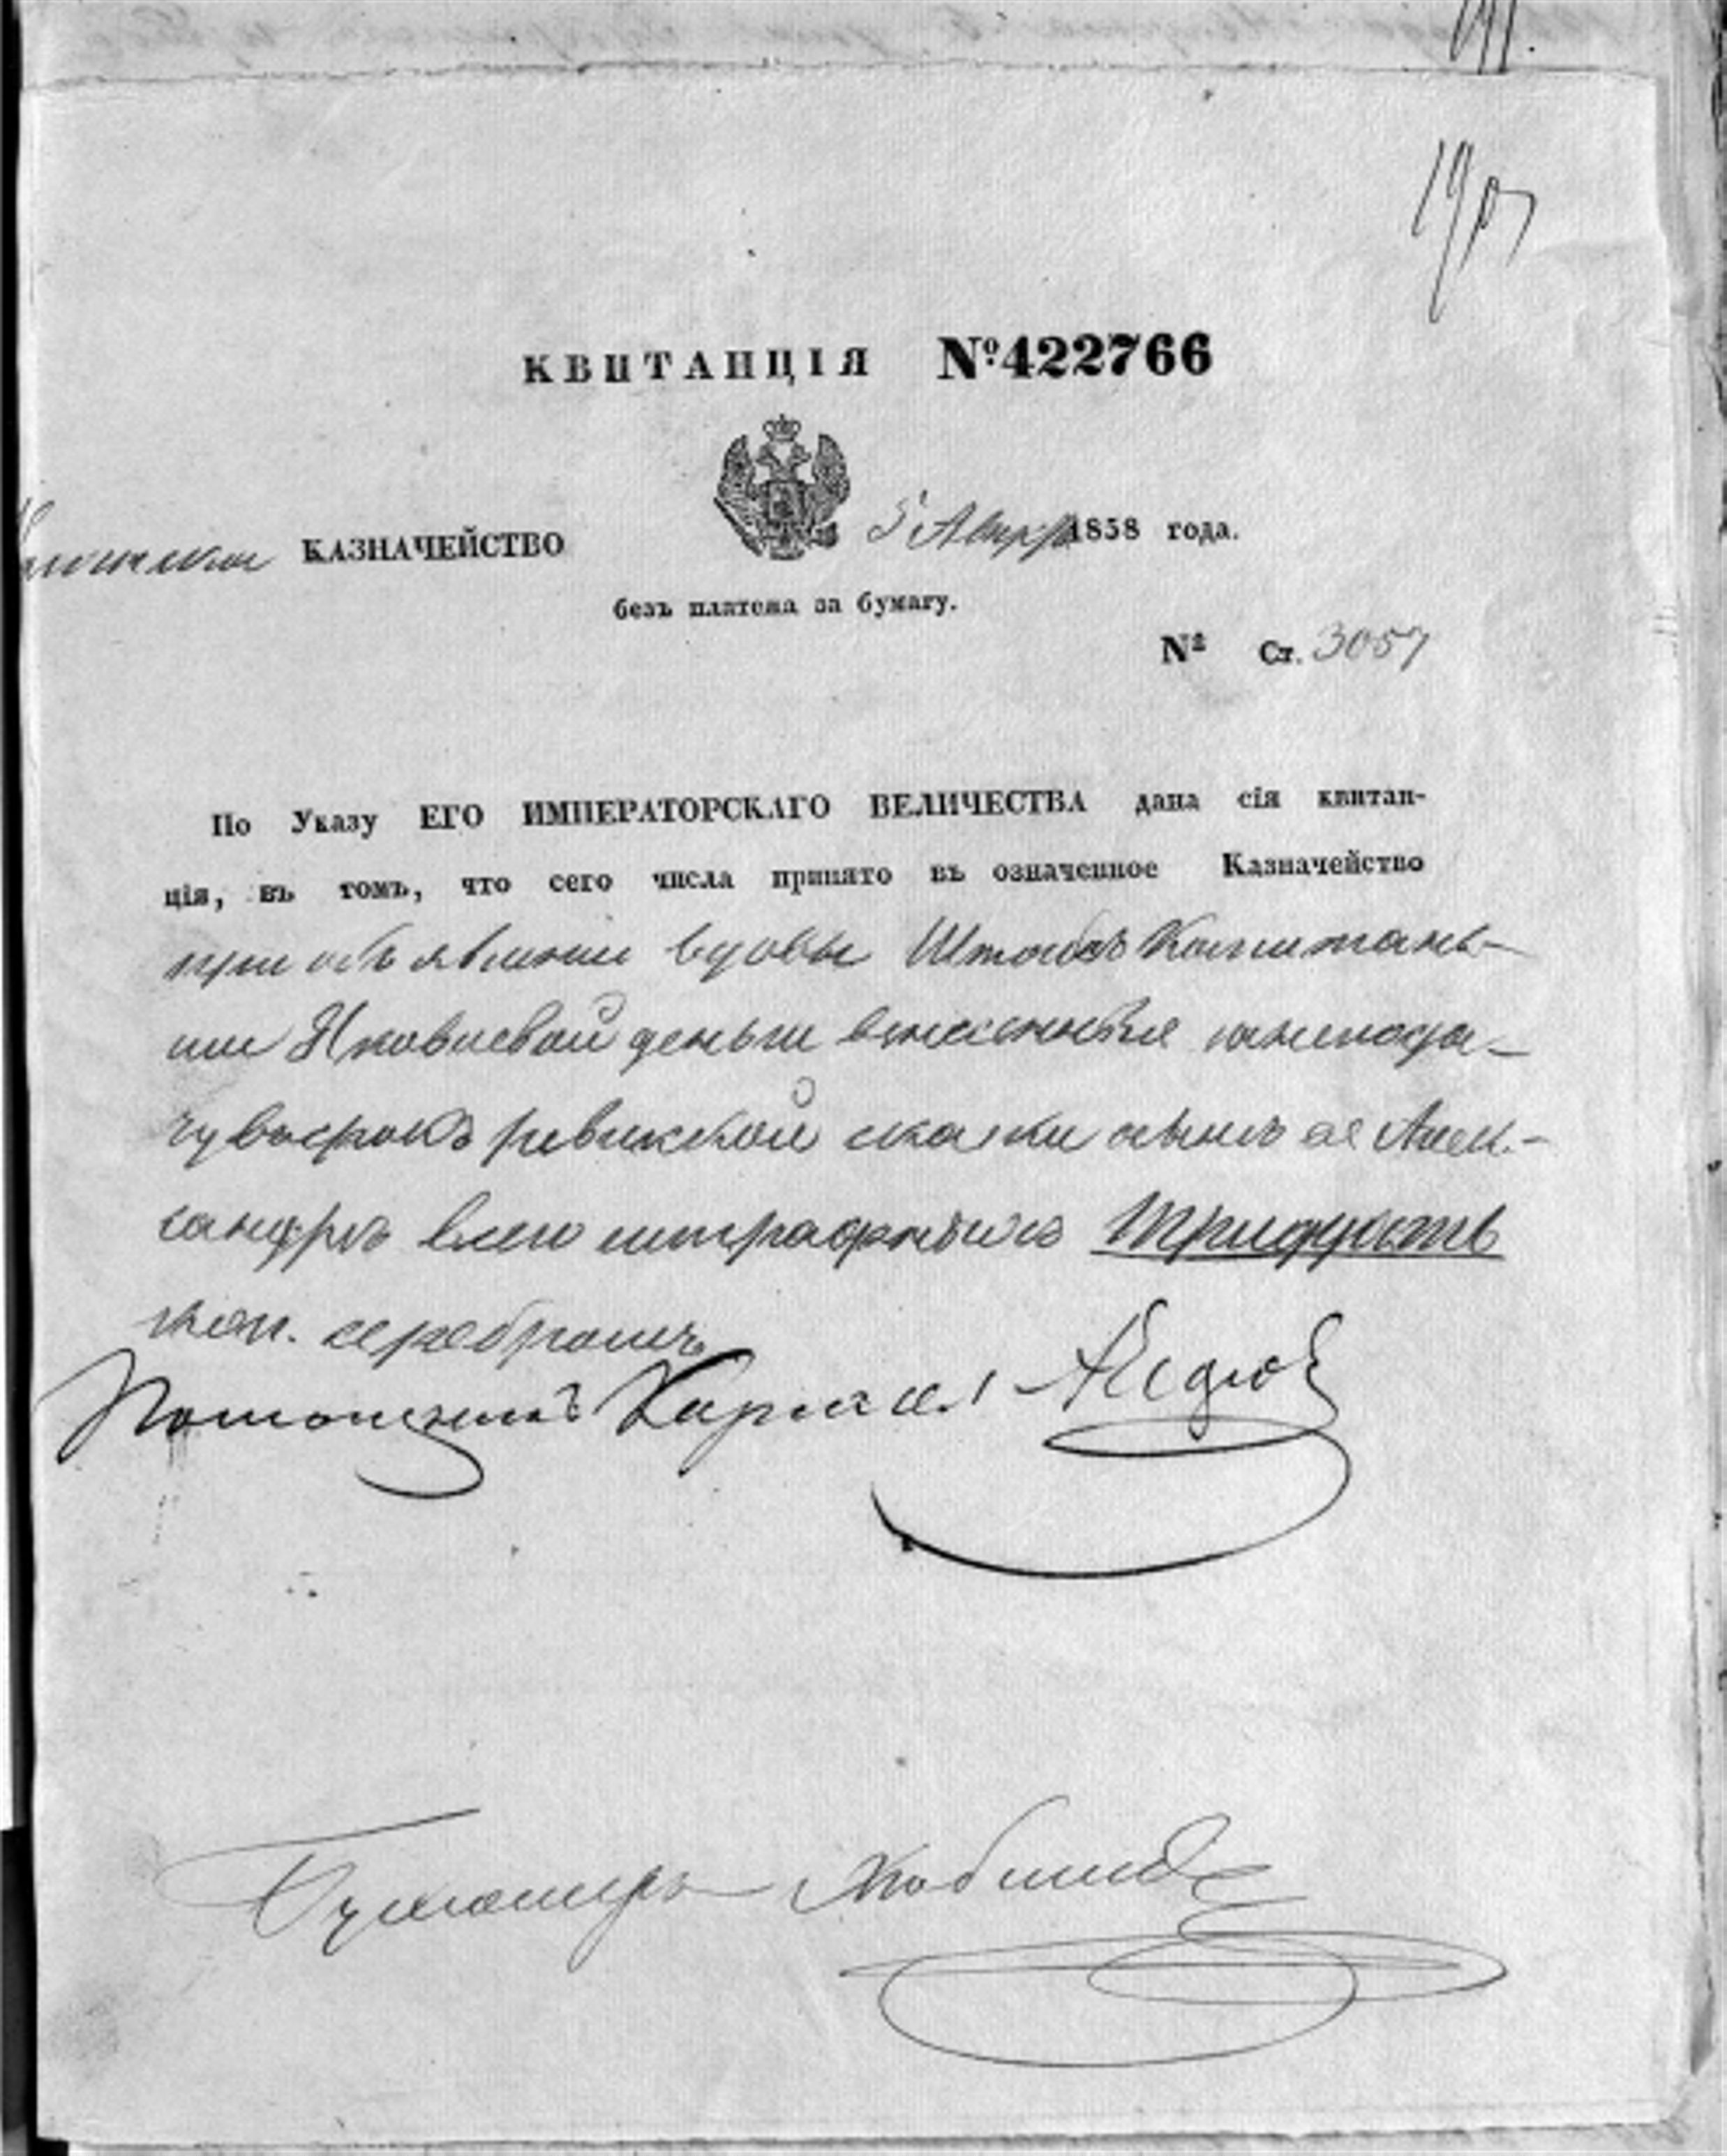 КВИТАНЦІЯ №422766
КАЗНАЧЕЙСТВО
5 Апр 1858 года.
безъ платежа за бумагу.
№ Ст. 3057
По Указу ЕГО ИМПЕРАТОРСКАГО ВЕЛИЧЕСТВА дана сія квитан-
ція, въ томъ, что сего числа принято въ означенное Казначейство
при объявленіи вдовы Штабсъ Капитан-
ши Яковлевой деньги внесенные
чу въ срокъ ревизской сказки сынъ ее Алек-
сандръ всего штрафныхъ тридцать
коп. серебромъ
Помощникъ
Бухгалтеръ